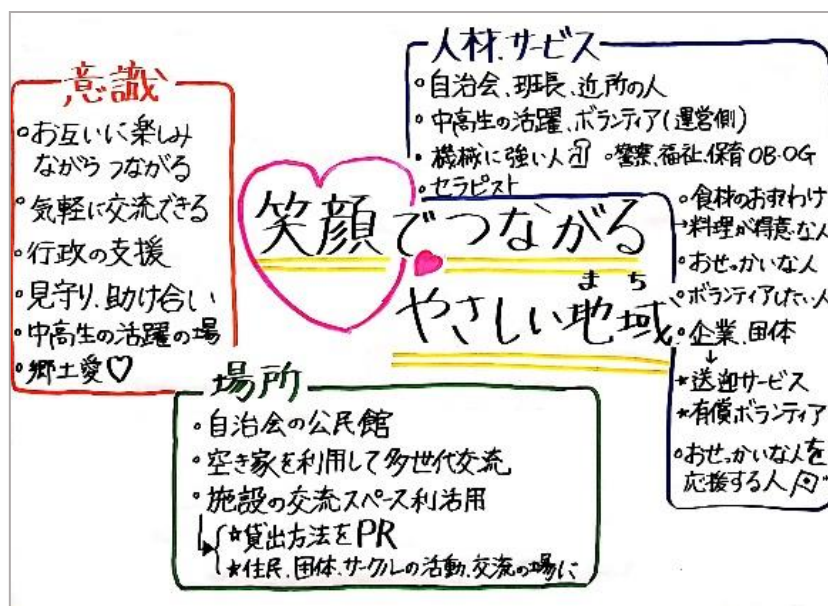 笑顔でつながる
やさしい地域
まち
意識
・お互いに楽しみ
ながらつながる
・気軽に交流できる
・行政の支援
・見守り、助け合い
・中高生の活躍の場
・郷土愛♡
人材、サービス
・自治会、班長、近所の人
・中高生の活躍、ボランティア(運営側)
・機械に強い人 ・警察、福祉、保育OB・OG
・セラピスト
・食材のおすそわけ
→料理が得意な人
・おせっかいな人
・ボランティアしたい人
・企業、団体
↓
★送迎サービス
★有償ボランティア
・おせっかいな人を
応援する人
場所
・自治会の公民館
・空き家を利用して多世代交流
・施設の交流スペース利活用
→★貸出方法をPR
★住民、団体、サークルの活動、交流の場に